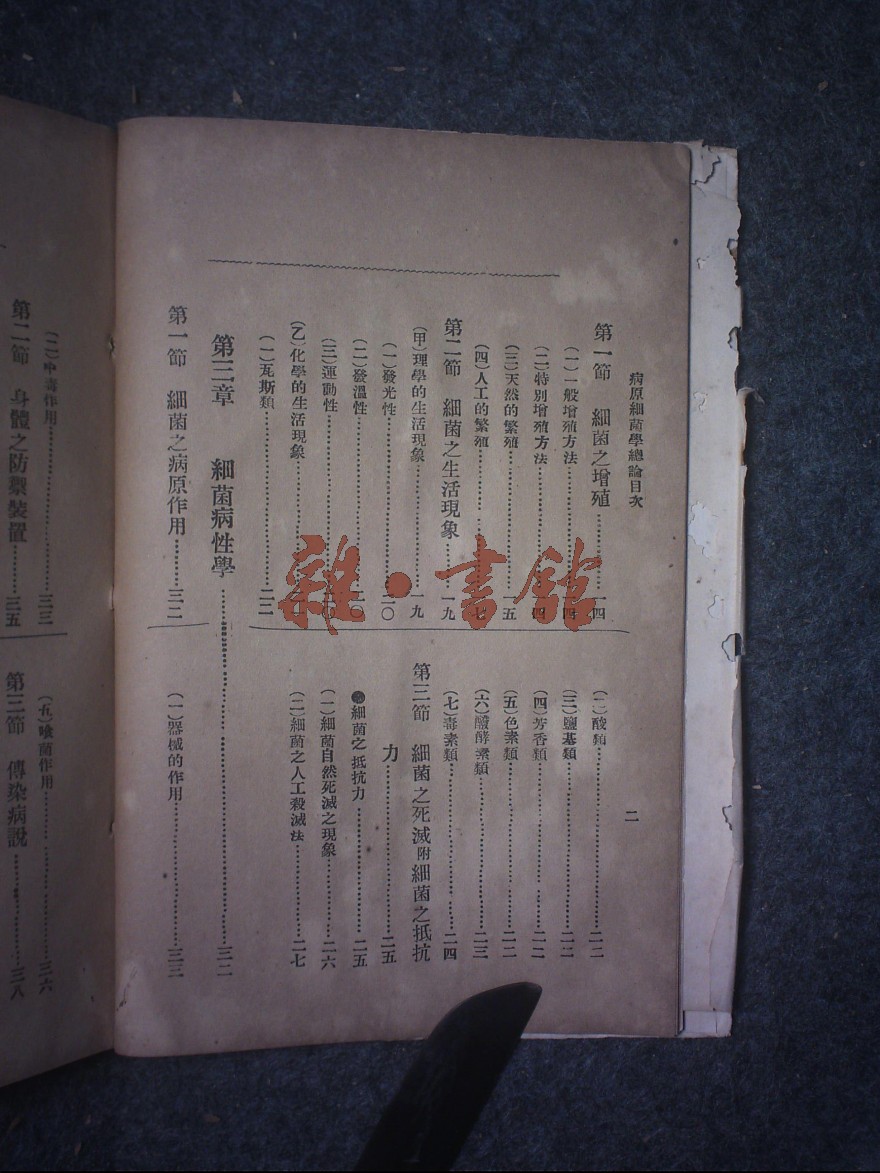 病原細菌學總論目次
二
第一節 細菌之增殖……一四
(一)一般增殖方法……一四
(二)特別增殖方法……一四
(三)天然的繁殖……一五
(四)人工的繁殖……一七
第二節 細菌之生活現象……一九
(甲)理學的生活現象……一九
(一)發光性……二〇
(二)發溫性……二〇
(三)運動性……二〇
(乙)化學的生活現象
(一)瓦斯類……二二
(二)酸類……二二
(三)鹽基類……二二
(四)芳香類……二二
(五)色素類……二二
(六)醱酵素類……二三
(七)毒素類……二四
第三節 細菌之死滅附細菌之抵抗
力……二五
細菌之抵抗力……二五
(一)細菌自然死滅之現象……二六
(二)細菌之人工殺滅法……二七
第三章 細菌病性學……三二
第一節 細菌之病原作用……三二
(一)器械的作用……三三
(二)中毒作用……三三
第二節 身體之防禦裝置……三五
(五)喰菌作用……三六
第三節 傳染病說……三八
雜·書館